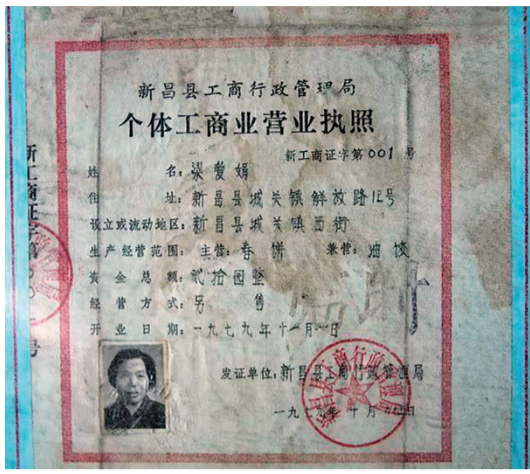 新昌县工商行政管理局
个体工商业营业执照
新工商证字第001号
姓名：梁爱娟
住址：新昌县城关镇解放路12号
设立或流动地区：新昌县城关镇西街
生产经营范围：主营：春饼 兼营：油馍
资金总额：贰拾园整
经营方式：另售
开业日期：一九七九年十一月一日
发证单位：新昌县工商行政管理局
一九七九年十月
新工商证字第001号